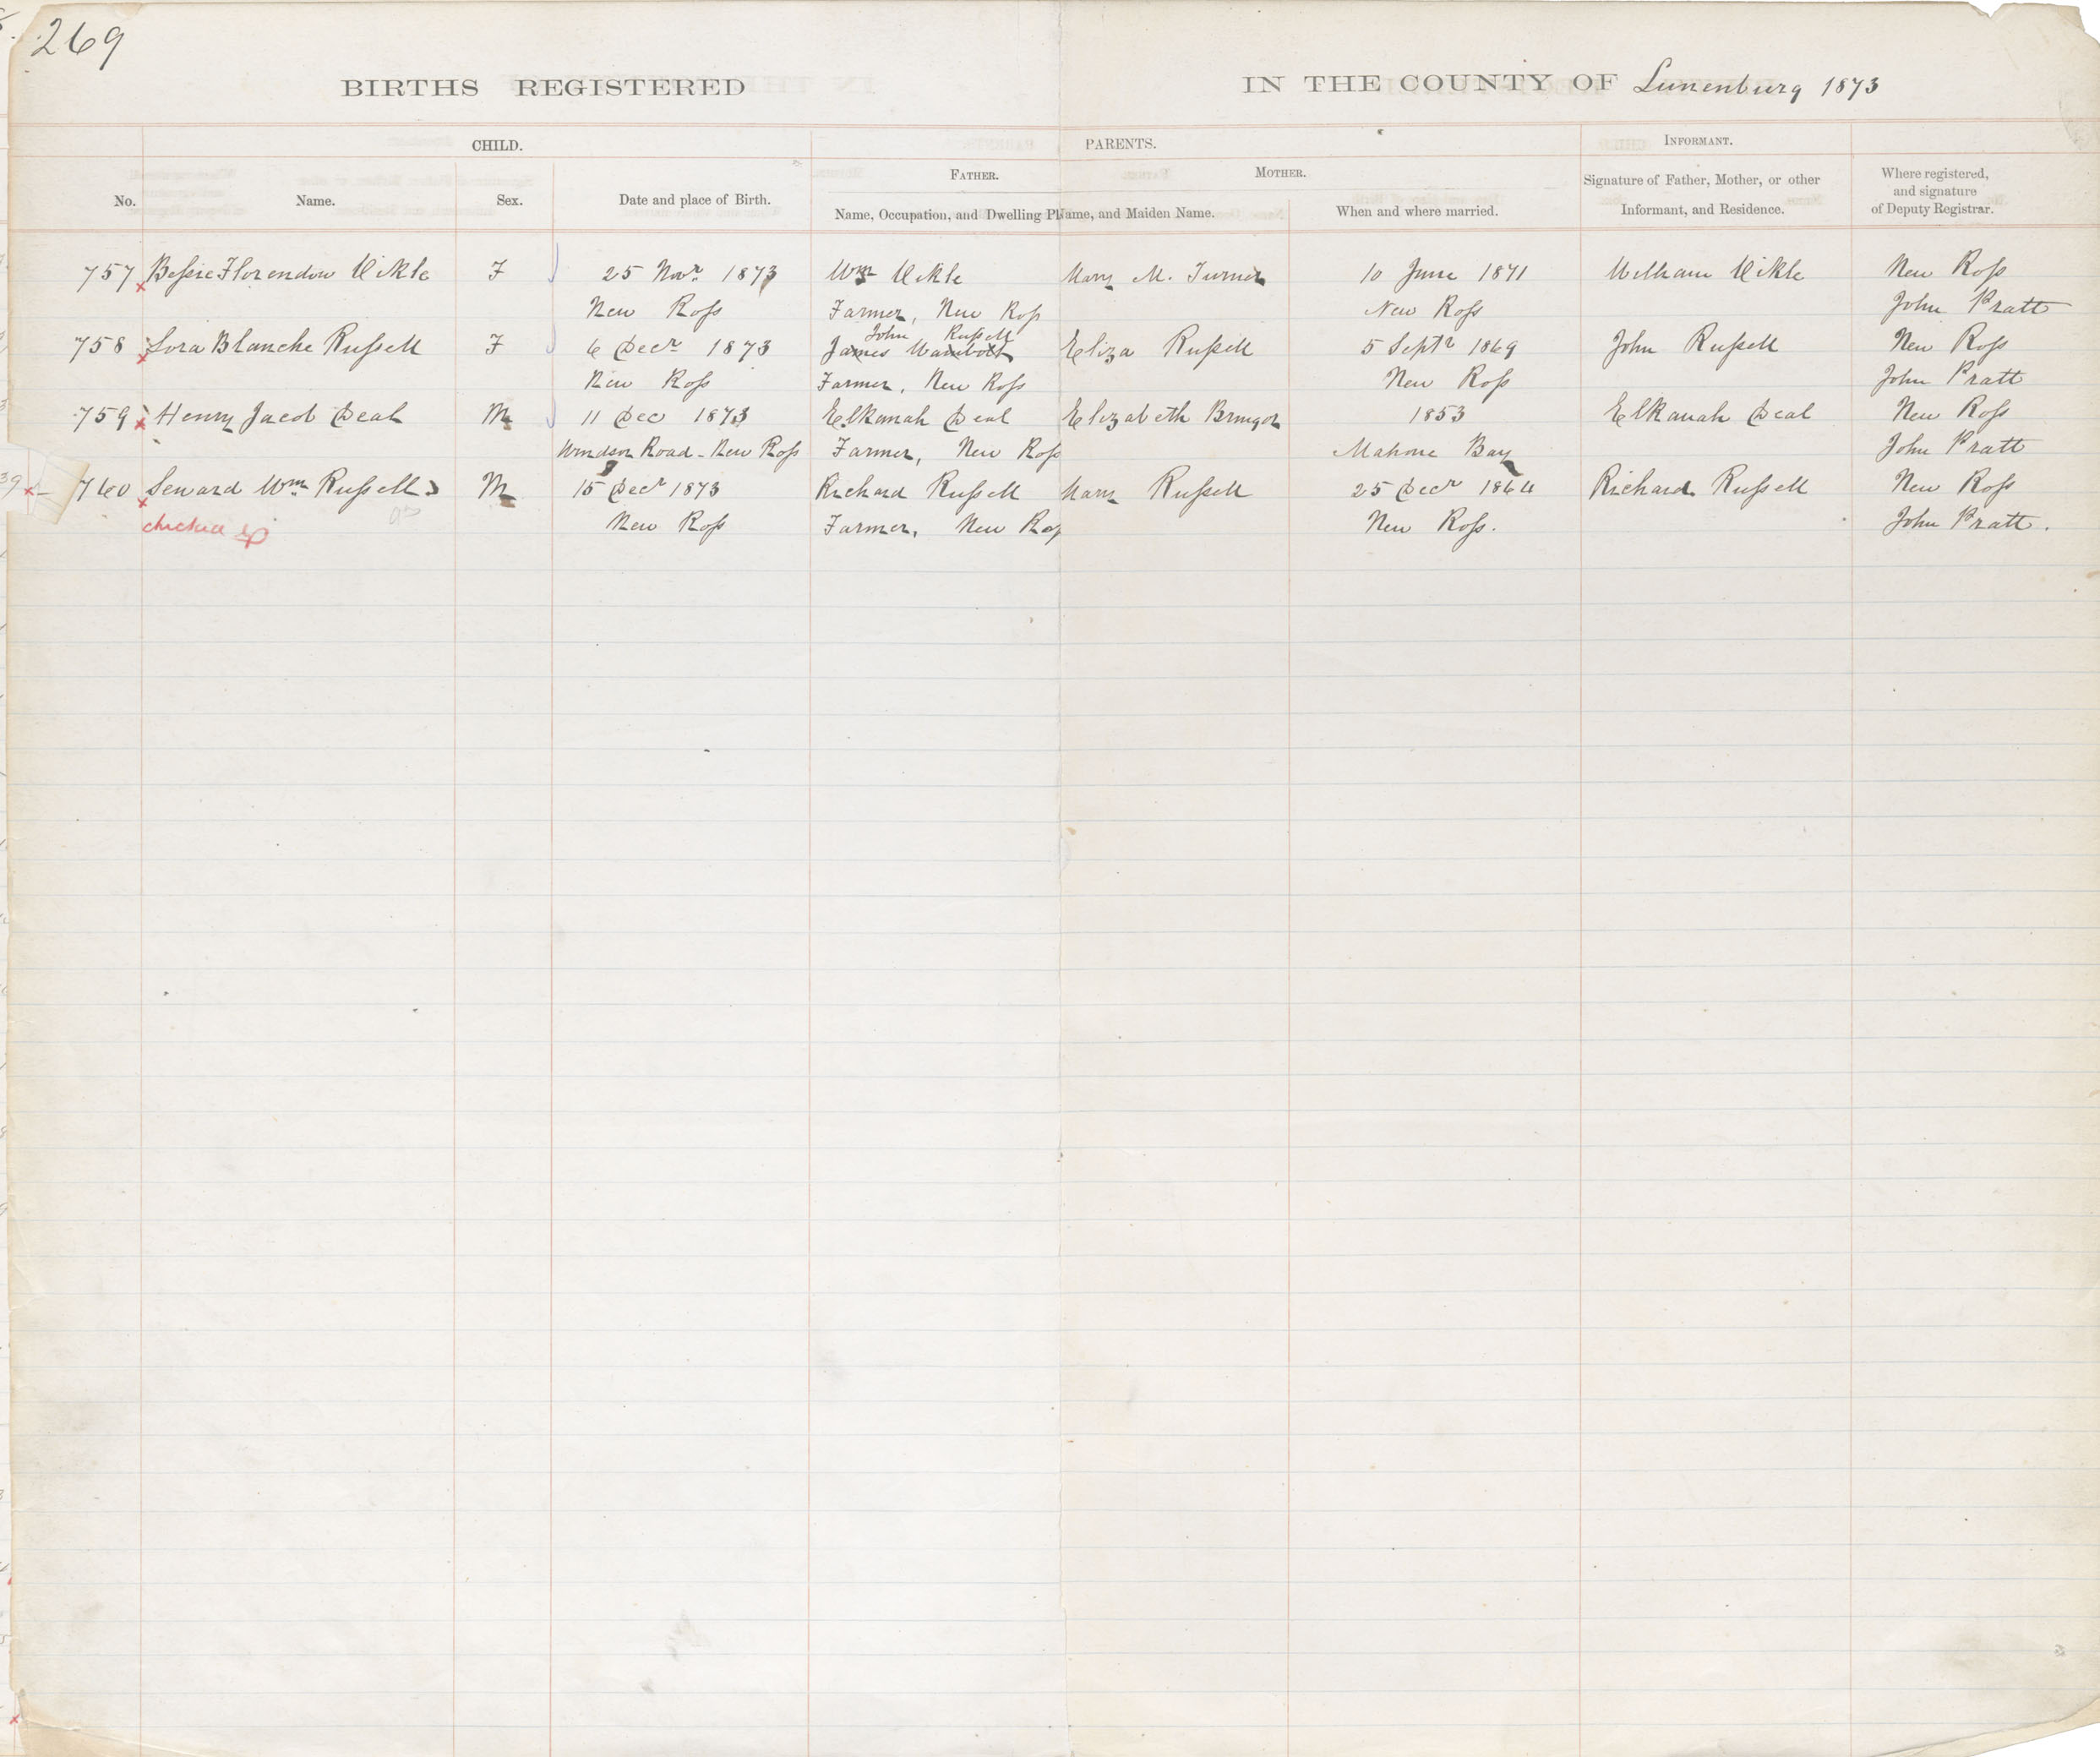 269
BIRTHS REGISTERED IN THE COUNTY OF Lunenburg 1873
CHILD. PARENTS. INFORMANT.
No. Name. Sex. Date and place of Birth. FATHER. MOTHER. Signature of Father, Mother, or other Where registered,
Name, Occupation, and Dwelling Pl Name, and Maiden Name. When and where married. Informant, and Residence. and signature
of Deputy Registrar.
757 Bessie Florendow Uikle F 25 Novr 1873 Wm Uikle Mary M. Turner 10 June 1871 William Uikle New Ross
New Ross Farmer, New Ross New Ross John Pratt
John Russell
758 Lora Blanche Russell F 6 Decr 1873 James Wambolt Eliza Russell 5 Septr 1869 John Russell New Ross
New Ross Farmer, New Ross New Ross John Pratt
759 Henry Jacob Deal M 11 Dec 1873 Elkanah Deal Elizabeth 1853 Elkanah Deal New Ross
Windsor Road - New Ross Farmer, New Ross Mahone Bay John Pratt
39 x 760 Seward Wm Russell M 15 Decr 1873 Richard Russell Mary Russell 25 Decr 1864 Richard Russell New Ross
New Ross Farmer, New Ross New Ross. John Pratt.
checked